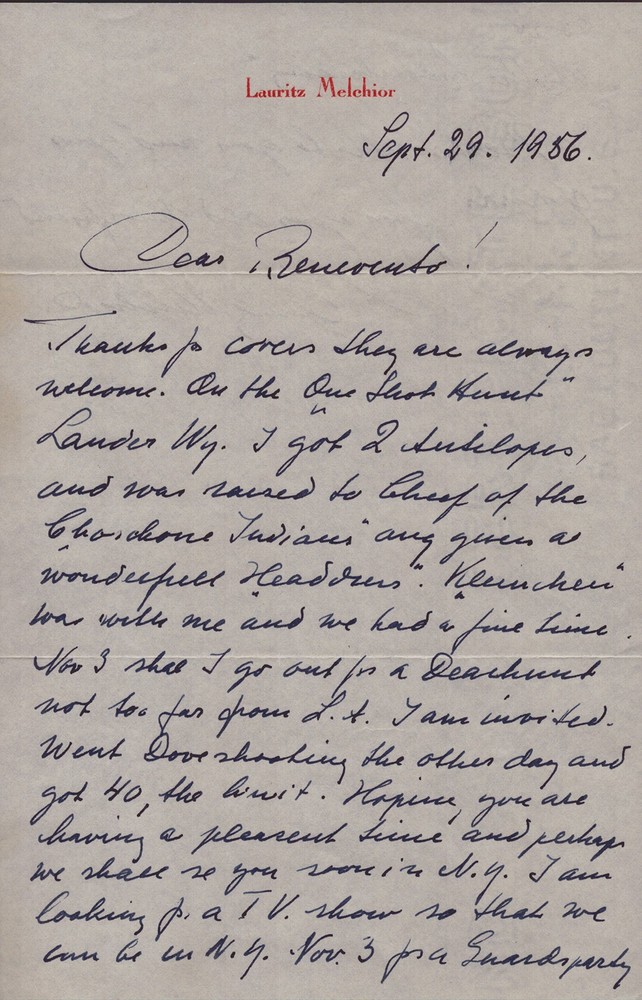 Lauritz Melchior
Sept. 29. 1956.
Dear Benevento!
Thanks for covers they are always
welcome. On the "One Shot Hunt"
Lander Wy. I got 2 Antilopes,
and was raised to Cheef of the
"Choschone Indians" and given a
wonderfull "Headdress". "Kleinchen"
was with me and we had a fine time.
Nov 3 shall I go out for a Deerhunt
not too far from L.A. I am invited.
Went Doveshooting the other day and
got 40, the limit. Hoping, you are
having a pleasent time and perhaps
we shall se you soon in N.Y. I am
looking for a T.V. show so that we
can be in N.Y. Nov. 3 for a Guardsparty